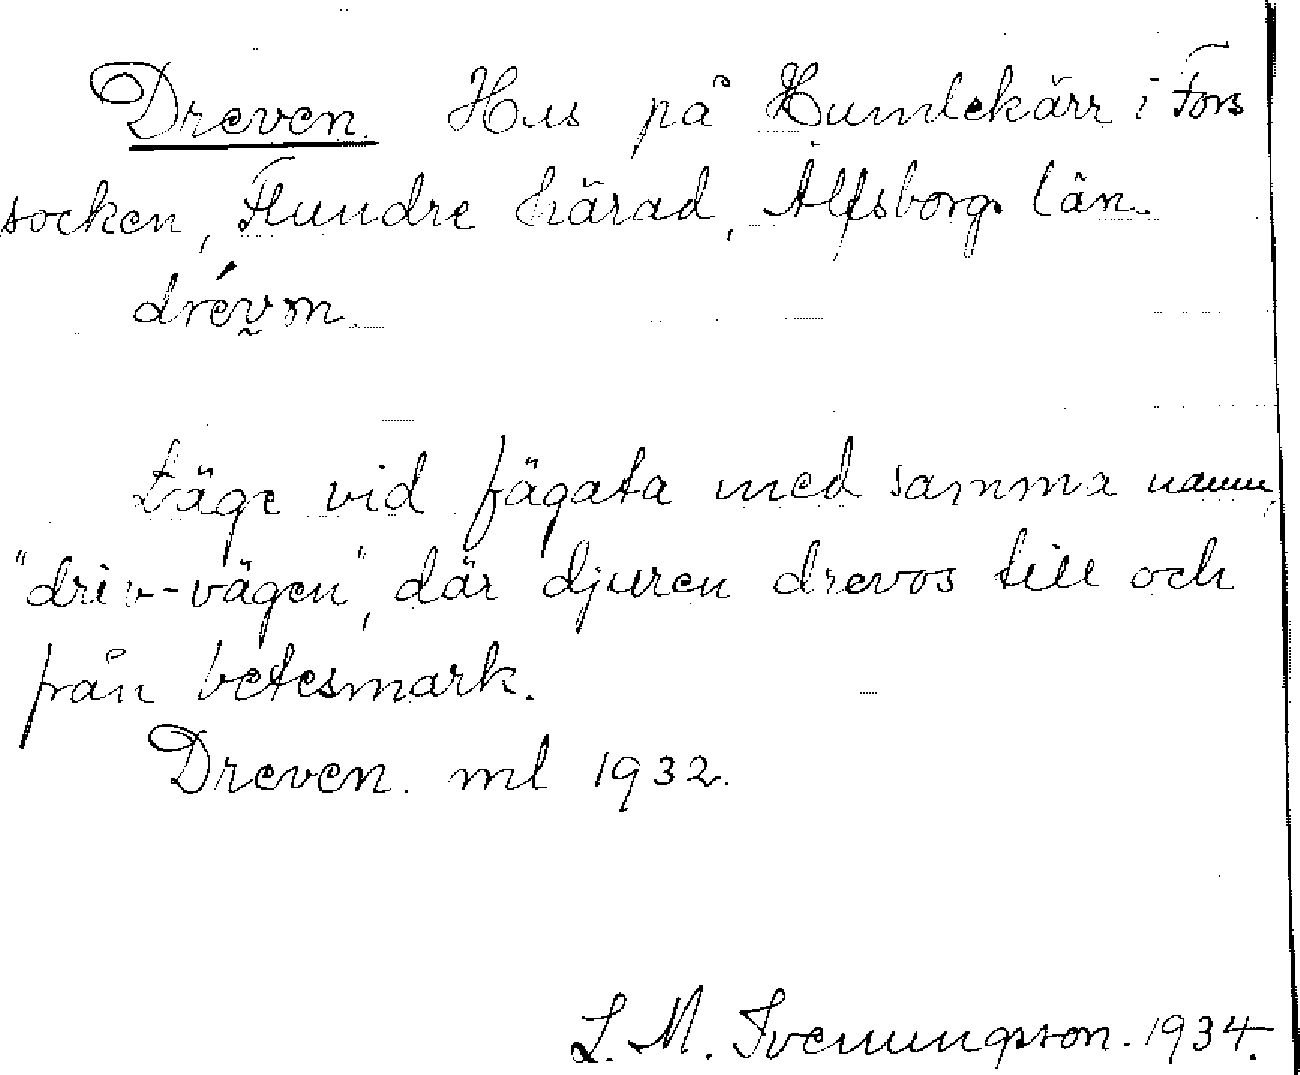 Dreven. Hus på Humlekärr i Fors
socken, Flundre härad, Älfsborgs län.
drévm.
Läge vid fägata med samma namn,
"driv-vägen", där djuren drevos till och
från betesmark.
Dreven. ml 1932.
L. M. Svenungsson. 1934.